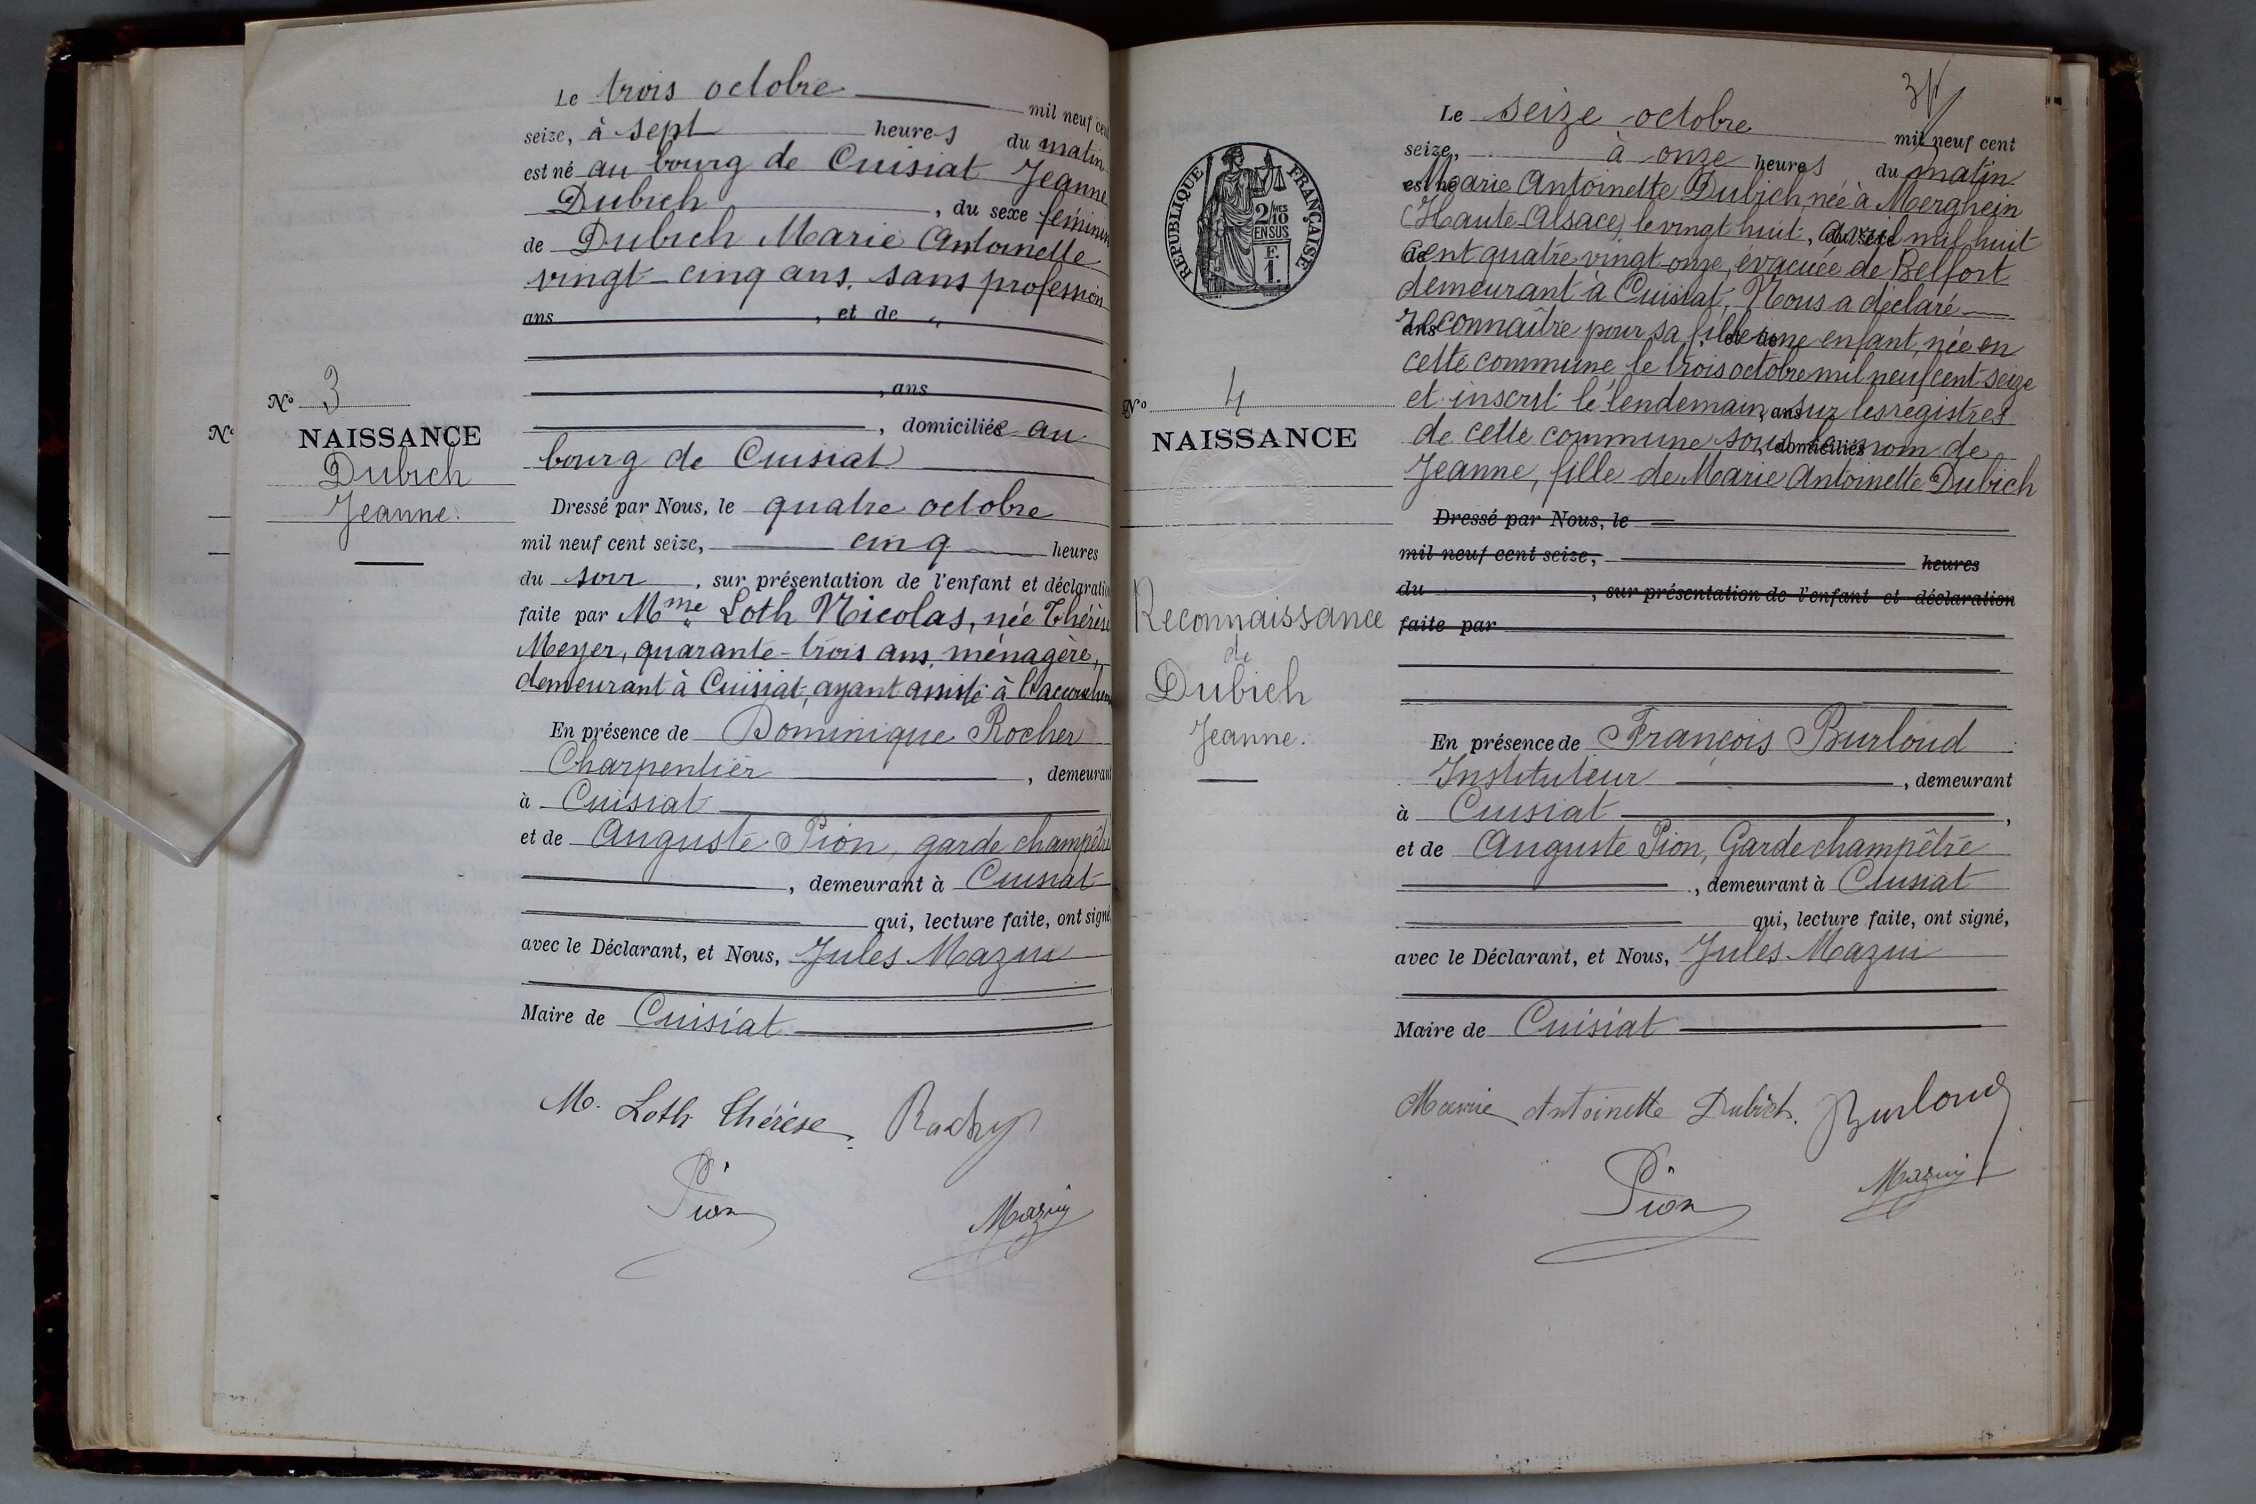 Le trois octobre mil neuf cent
seize, à sept heures du matin
est né au bourg de Cuisiat Jeanne
Dubich, du sexe féminin
de Dubich Marie Antoinette
vingt-cinq ans, sans profession
ans, et de „
, ans
, domiciliée au
bourg de Cuisiat
Dressé par Nous, le quatre octobre
mil neuf cent seize, cinq heures
du soir, sur présentation de l'enfant et déclaration
faite par Mme Loth Nicolas, née Thérèse
Meyer, quarante-trois ans, ménagère,
demeurant à Cuisiat, ayant assisté à l'accouchem
En présence de Dominique Rocher
Charpentier, demeurant
à Cuisiat
et de Auguste Pion, garde champêtre
, demeurant à Cuisiat
qui, lecture faite, ont signé
avec le Déclarant, et Nous, Jules Mazui
Maire de Cuisiat
M. Loth Thérése
Pion
Mazuy
No 3
NAISSANCE
Dubich
Jeanne.
No
3
Le seize octobre mil neuf cent
seize, à onze heures du matin
est né Marie Antoinette Dubich, née à Merghein
(Haute-Alsace) le vingt huit, avril mil huit
cent quatre vingt onze, évacuée de Belfort
demeurant à Cuisiat. Nous a déclaré
reconnaître pour sa fille une enfant, née en
cette commune le trois octobre mil neuf cent seize
et inscrit le lendemain sur les régistres
de cette commune sous le nom de
Jeanne, fille de Marie Antoinette Dubich
Dressé par Nous, le
mil neuf cent seize, heures
du , sur présentation de l'enfant et déclaration
faite par
En présence de François Burloud
Instituteur, demeurant
à Cuisiat,
et de Auguste Pion, Garde champêtre
, demeurant à Cuisiat
qui, lecture faite, ont signé,
avec le Déclarant, et Nous, Jules Mazui
Maire de Cuisiat
Marie Antoinette Dubich. Burloud
Pion
Mazuy
RÉPUBLIQUE FRANÇAISE
2/10 MES
EN SUS
F.
1.
No 4
NAISSANCE
Reconnaissance
de
Dubich
Jeanne.